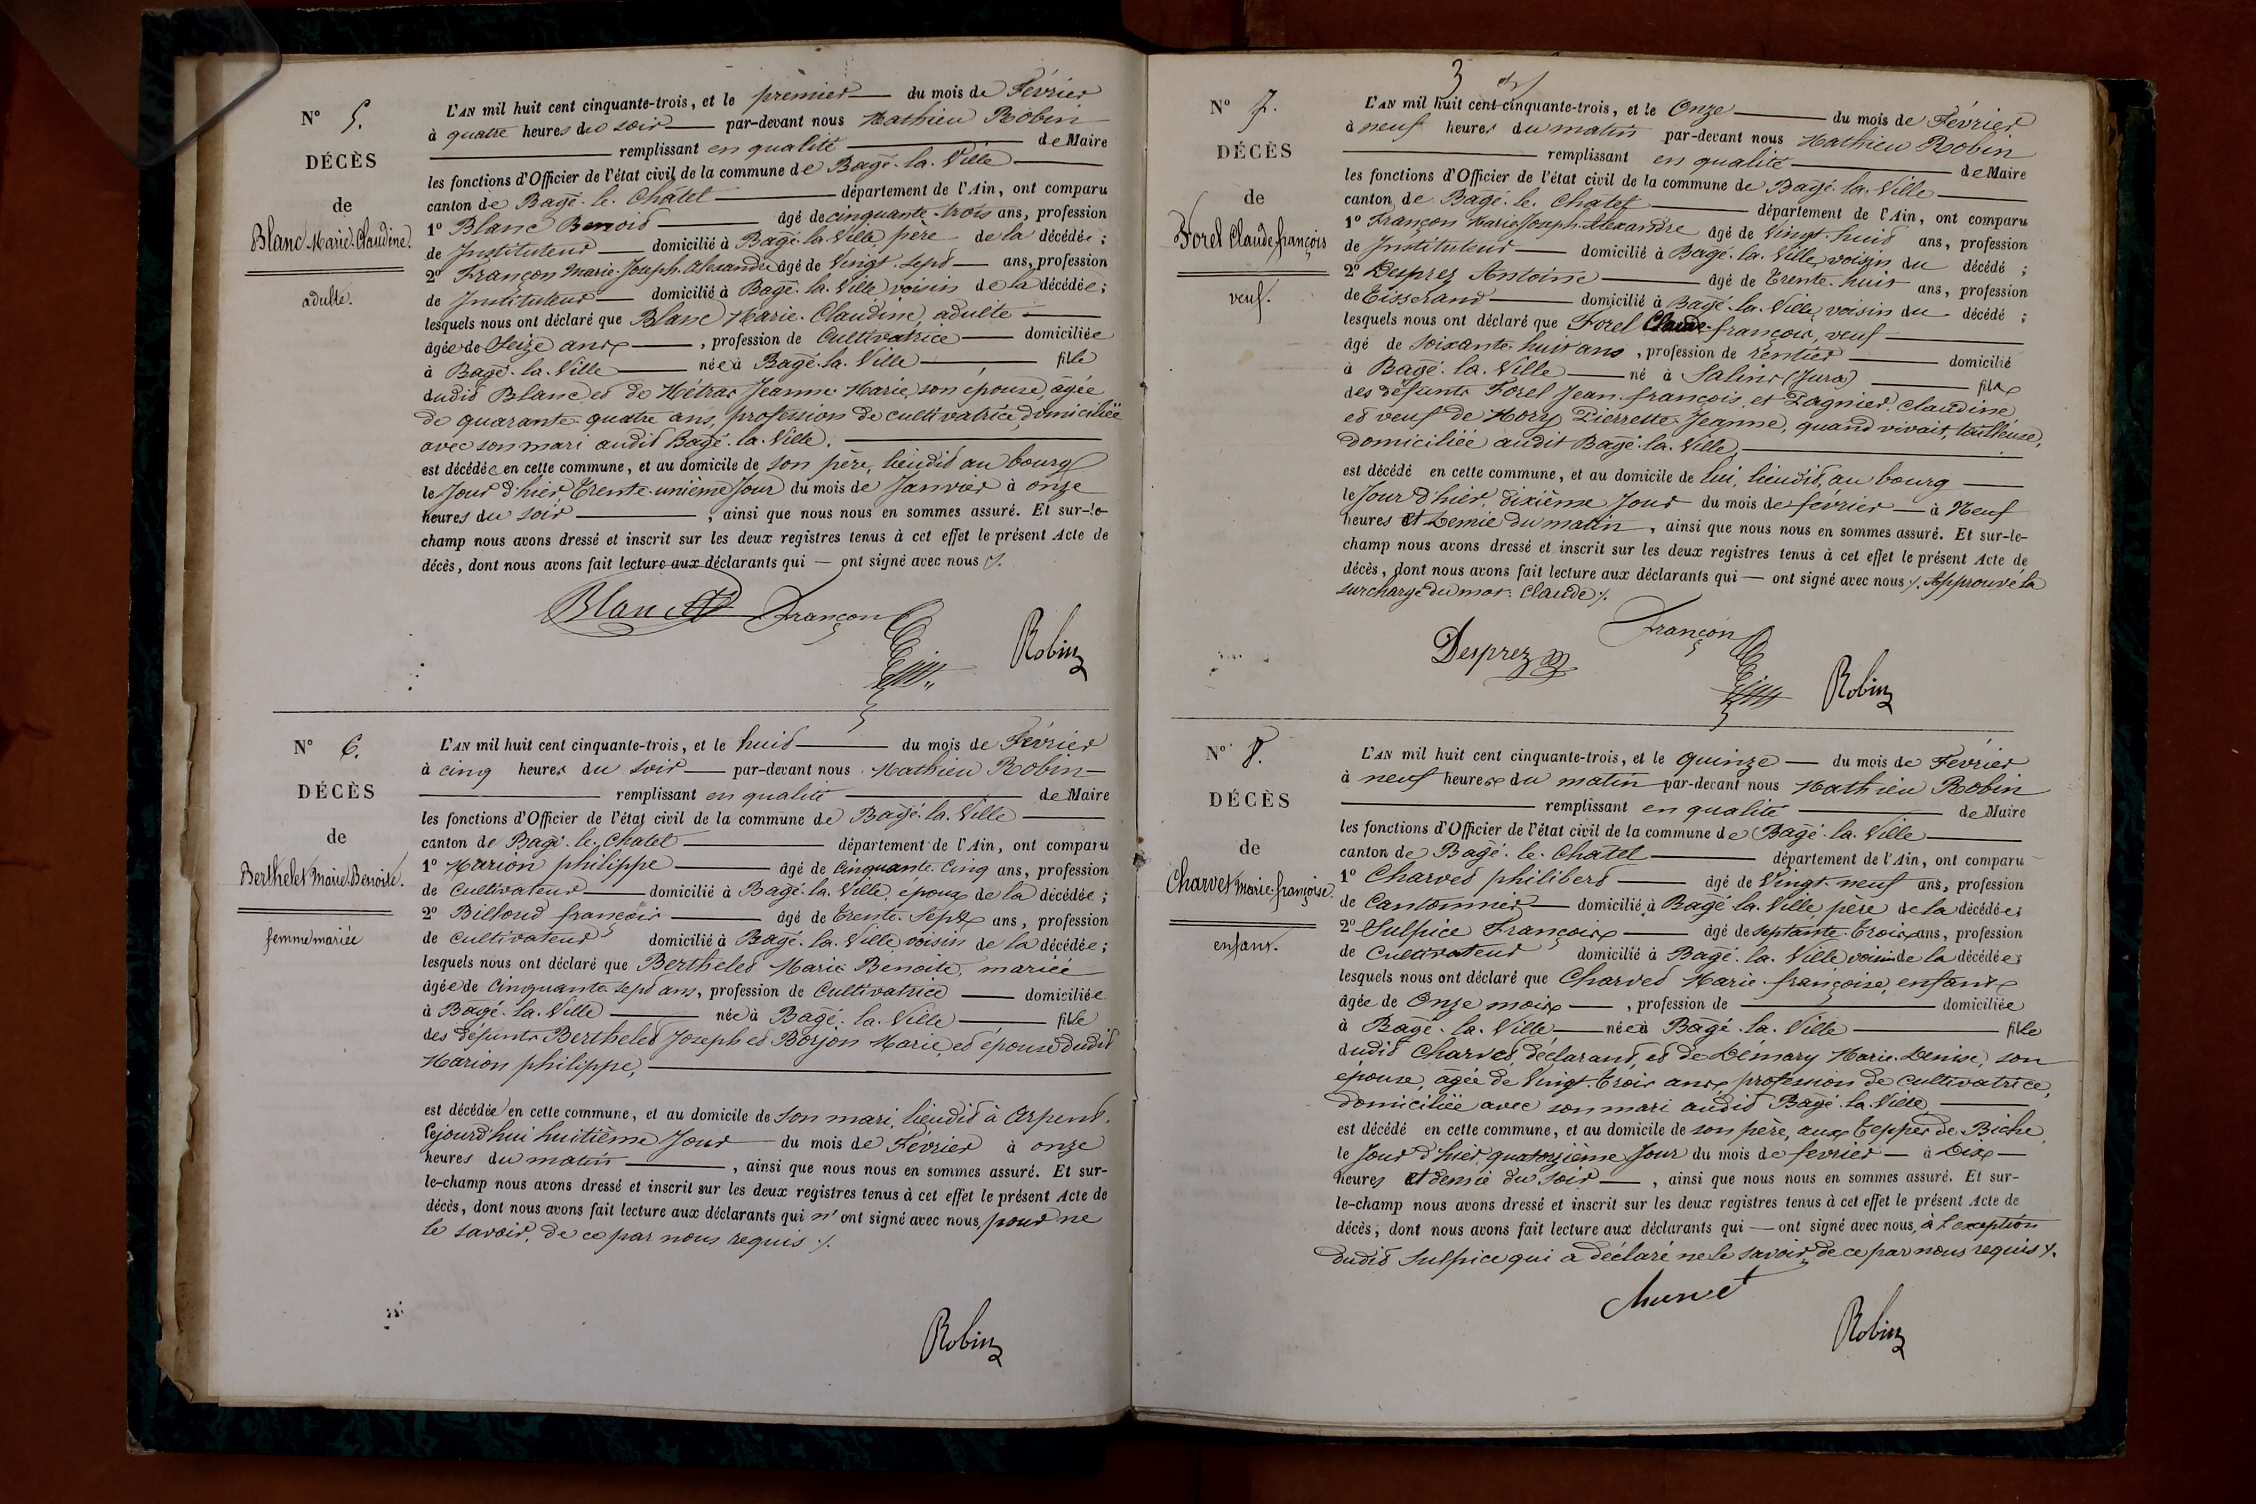 N° 5.
DÉCÈS
de
Blanc Marie-Claudine.
adulte.
L'AN mil huit cent cinquante-trois, et le premier du mois de Février
à quatre heures du soir par-devant nous Mathieu Robin
remplissant en qualité de Maire
les fonctions d'Officier de l'état civil de la commune de Bagé-la-Ville
canton de Bagé-le-Châtel département de l'Ain, ont comparu
1° Blanc Benoid âgé de cinquante-trois ans, profession
de Instituteur domicilié à Bagé-la-Ville, père de la décédée ;
2° Françon Marie-Joseph-Alexandre âgé de Vingt-sept ans, profession
de Instituteur domicilié à Bagé-la-Ville voisin de la décédée ;
lesquels nous ont déclaré que Blanc Marie-Claudine, adulte
âgée de Seize ans, profession de Cultivatrice domiciliée
à Bagé-la-Ville née à Bagé-la-Ville, fille
dudit Blanc et de Métras Jeanne-Marie, son épouse, âgée
de quarante-quatre ans, profession de cultivatrice, domiciliée
avec son mari audit Bagé-la-Ville.
est décédée en cette commune, et au domicile de son père, lieudit au bourg
le Jour d'hier, Trente-unième Jour du mois de Janvier à onze
heures du soir, ainsi que nous nous en sommes assuré. Et sur-le-
champ nous avons dressé et inscrit sur les deux registres tenus à cet effet le présent Acte de
décès, dont nous avons fait lecture aux déclarants qui — ont signé avec nous ./.
Blanc Françon
Robin
N° 6.
DÉCÈS
de
Berthelet Marie-Benoite.
femme mariée
L'AN mil huit cent cinquante-trois, et le huit du mois de Février
à cinq heures du soir par-devant nous Mathieu Robin
remplissant en qualité de Maire
les fonctions d'Officier de l'état civil de la commune de Bagé-la-Ville
canton de Bagé-le-Chatel département de l'Ain, ont comparu
1° Marion philippe âgé de Cinquante-Cinq ans, profession
de Cultivateur domicilié à Bagé-la-Ville, époux de la décédée ;
2° Billoud françois âgé de Trente-Sept ans, profession
de Cultivateur domicilié à Bagé-la-Ville voisin de la décédée ;
lesquels nous ont déclaré que Berthelet Marie Benoite, mariée
âgée de Cinquante-sept ans, profession de Cultivatrice domiciliée
à Bagé-la-Ville née à Bagé-la-Ville fille
des défunts Berthelet Joseph et Borjon Marie, et épouse dudit
Marion philippe,
est décédée en cette commune, et au domicile de son mari, lieudit à Arpent.
Cejourd'hui huitième Jour du mois de Février à onze
heures du matin, ainsi que nous nous en sommes assuré. Et sur-
le-champ nous avons dressé et inscrit sur les deux registres tenus à cet effet le présent Acte de
décès, dont nous avons fait lecture aux déclarants qui n'ont signé avec nous, pour ne
le savoir, de ce par nous requis ./.
Robin
3
N° 7.
DÉCÈS
de
Forel Claude françois
veuf.
L'AN mil huit cent cinquante-trois, et le Onze du mois de Février
à neuf heures du matin par-devant nous Mathieu Robin
remplissant en qualité de Maire
les fonctions d'Officier de l'état civil de la commune de Bagé-la-Ville
canton de Bagé-le-Chatel département de l'Ain, ont comparu
1° Françon Marie-Joseph-Alexandre âgé de Vingt-huit ans, profession
de Instituteur domicilié à Bagé-la-Ville, voisin du décédé ;
2° Desprez Antoine âgé de Trente-huit ans, profession
de Tisserand domicilié à Bagé-la-Ville, voisin du décédé ;
lesquels nous ont déclaré que Forel Claude-françois, veuf
âgé de Soixante-huit ans, profession de rentier domicilié
à Bagé-la-Ville né à Salins (Jura) fils
des défunts Forel Jean-françois et Pagnier Claudine
et veuf de Mory Pierrette-Jeanne, quand vivait, tailleuse,
domiciliée audit Bagé-la-Ville,
est décédé en cette commune, et au domicile de lui, lieudit, au bourg
le Jour d'hier, dixième Jour du mois de février à Neuf
heures et Demie du matin, ainsi que nous nous en sommes assuré. Et sur-le-
champ nous avons dressé et inscrit sur les deux registres tenus à cet effet le présent Acte de
décès, dont nous avons fait lecture aux déclarants qui — ont signé avec nous ./. Approuvé la
surcharge du mot: Claude ./.
Françon
Desprez
Robin
N° 8.
DÉCÈS
de
Charvet Marie-françoise.
enfant.
L'AN mil huit cent cinquante-trois, et le quinze du mois de Février
à neuf heures du matin par-devant nous Mathieu Robin
remplissant en qualité de Maire
les fonctions d'Officier de l'état civil de la commune de Bagé-la-Ville
canton de Bagé-le-Chatel département de l'Ain, ont comparu
1° Charvet philibert âgé de Vingt-neuf ans, profession
de Cantonnier domicilié à Bagé-la-Ville, père de la décédée ;
2° Sulpice François âgé de septante-trois ans, profession
de Cultivateur domicilié à Bagé-la-Ville voisin de la décédée ;
lesquels nous ont déclaré que Charvet Marie-françoise, enfant
âgée de Onze mois, profession de domiciliée
à Bagé-la-Ville née à Bagé-la-Ville fille
dudit Charvet, déclarant, et de Démary Marie-Denise, son
épouse, âgée de Vingt-trois ans, profession de cultivatrice,
domiciliée avec son mari audit Bagé-la-Ville
est décédé en cette commune, et au domicile de son père, aux Teppes de Biche,
le Jour d'hier, quatorzième Jour du mois de fevrier à Dix
heures et demie du soir, ainsi que nous nous en sommes assuré. Et sur-
le-champ nous avons dressé et inscrit sur les deux registres tenus à cet effet le présent Acte de
décès, dont nous avons fait lecture aux déclarants qui — ont signé avec nous, à l'exception
dudit Sulpice qui a déclaré ne le savoir, de ce par nous requis ./.
Charvet
Robin